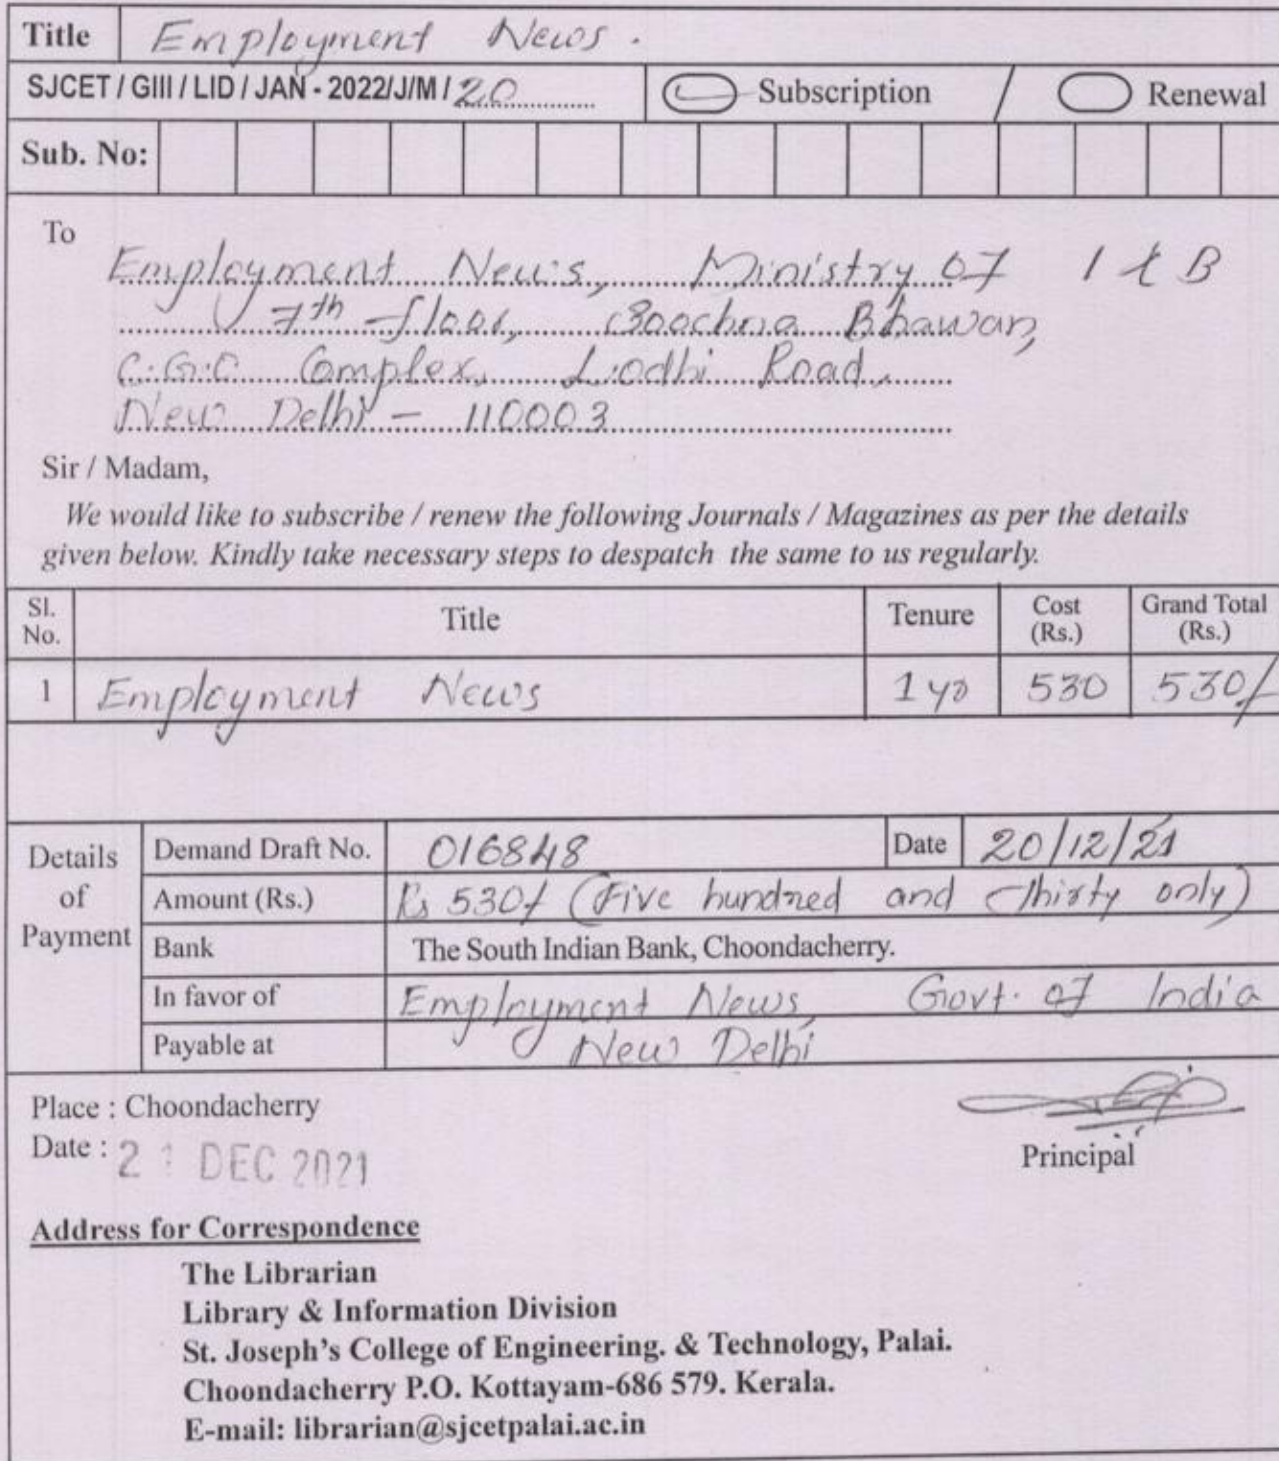 Title Employment News.
SJCET / GIII / LID / JAN - 2022/J/M / 20 Subscription / Renewal
Sub. No:
To
Employment News, Ministry of I & B
7th floor, Soochna Bhawan,
C.G.C Complex, Lodhi Road,
New Delhi - 110003
Sir / Madam,
We would like to subscribe / renew the following Journals / Magazines as per the details
given below. Kindly take necessary steps to despatch the same to us regularly.
Sl. No. Title Tenure Cost (Rs.) Grand Total (Rs.)
1 Employment News 1 yr 530 530/-
Details of Payment
Demand Draft No. 016848 Date 20/12/21
Amount (Rs.) Rs 530/- (Five hundred and thirty only)
Bank The South Indian Bank, Choondacherry.
In favor of Employment News, Govt. of India
Payable at New Delhi
Place : Choondacherry
Date : 2 DEC 2021
Principal
Address for Correspondence
The Librarian
Library & Information Division
St. Joseph's College of Engineering. & Technology, Palai.
Choondacherry P.O. Kottayam-686 579. Kerala.
E-mail: librarian@sjcetpalai.ac.in